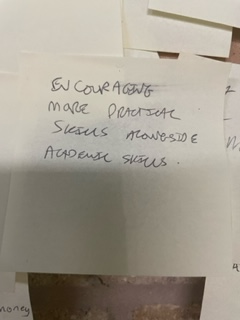 ENCOURAGING
MORE PRACTICAL
SKILLS ALONGSIDE
ACADEMIC SKILLS.
money